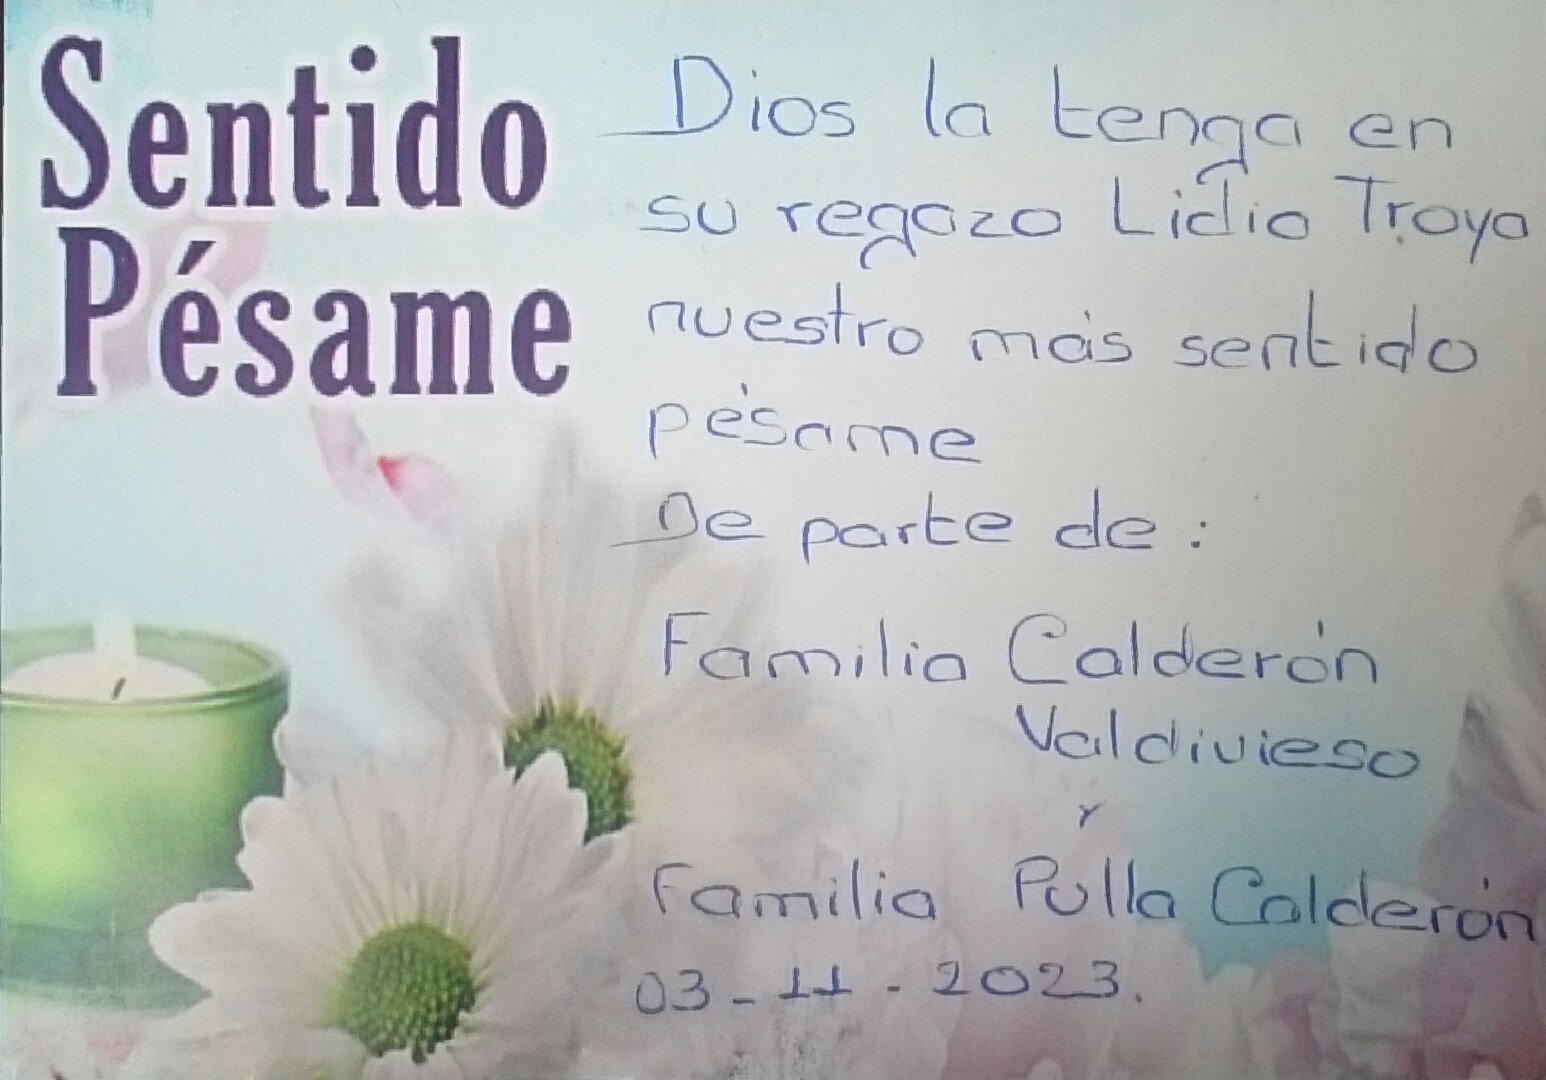 Sentido
Pésame
Dios la tenga en
su regazo Lidia Troya
nuestro más sentido
pésame
De parte de :
Familia Calderón
Valdivieso
y
Familia Pulla Calderón
03 - 11 - 2023.